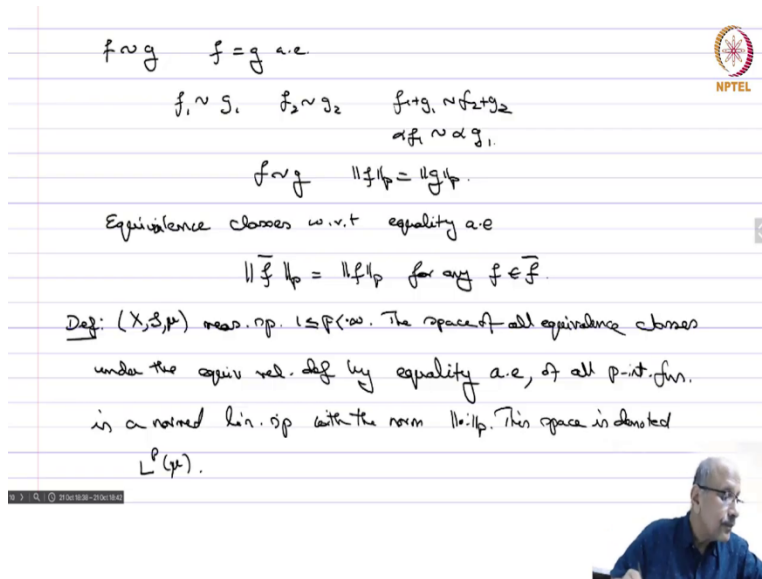 f ~ g f = g a.e.
NPTEL
f₁ ~ g₁ f₂ ~ g₂ f₁+g₁ ~ f₂+g₂
αf₁ ~ αg₁.
f ~ g ‖f‖p = ‖g‖p.
Equivalence classes w.r.t equality a.e
‖f̄‖p = ‖f‖p for any f ∈ f̄.
Def: (X,S,μ) meas. sp. 1≤p<∞. The space of all equivalence classes
under the equiv rel. def by equality a.e, of all p-int. fns.
is a normed lin. sp with the norm ‖·‖p. This space is denoted
Lᵖ(μ).
21 Oct 18:38 - 21 Oct 18:42